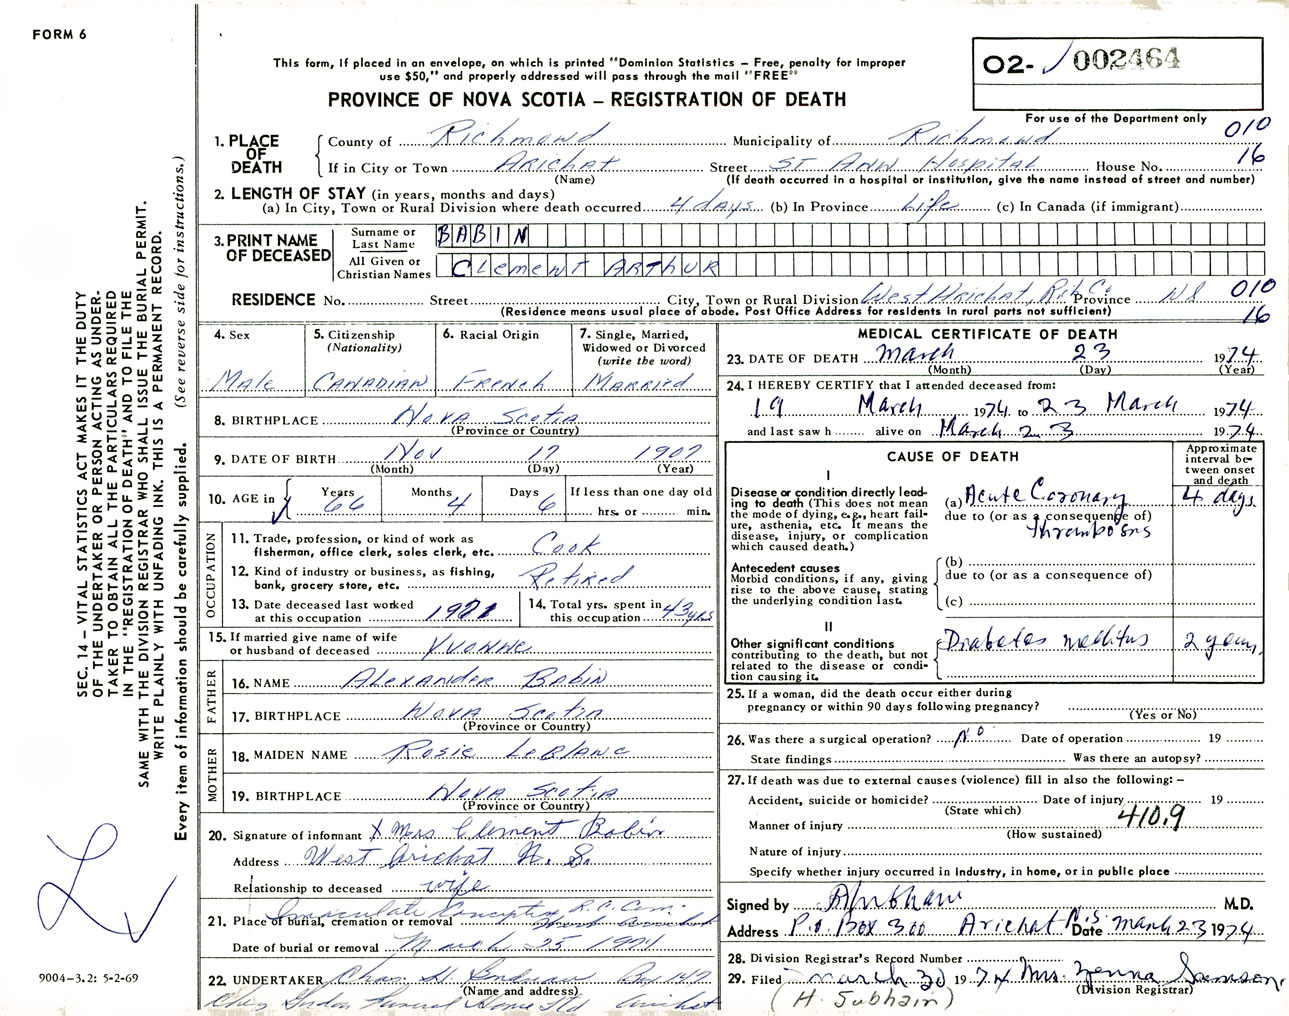 FORM 6
This form, if placed in an envelope, on which is printed "Dominion Statistics – Free, penalty for improper
use $50," and properly addressed will pass through the mail "FREE"
PROVINCE OF NOVA SCOTIA – REGISTRATION OF DEATH
02- 002464
For use of the Department only
010
16
1. PLACE OF DEATH
County of Richmond Municipality of Richmond
If in City or Town ARICHAT Street ST ANN Hospital House No.
(Name) (If death occurred in a hospital or institution, give the name instead of street and number)
2. LENGTH OF STAY (in years, months and days)
(a) In City, Town or Rural Division where death occurred 4 days (b) In Province Life (c) In Canada (if immigrant)
3. PRINT NAME OF DECEASED
Surname or Last Name BABIN
All Given or Christian Names Clement ARTHUR
RESIDENCE No. Street City, Town or Rural Division West Arichat, Rich Co. Province NS 010
(Residence means usual place of abode. Post Office Address for residents in rural parts not sufficient) 16
4. Sex Male
5. Citizenship (Nationality) CANADIAN
6. Racial Origin French
7. Single, Married, Widowed or Divorced (write the word) MARRIED
8. BIRTHPLACE Nova Scotia
(Province or Country)
9. DATE OF BIRTH Nov 17 1907
(Month) (Day) (Year)
10. AGE in Years 66 Months 4 Days 6 If less than one day old hrs. or min.
OCCUPATION
11. Trade, profession, or kind of work as
fisherman, office clerk, sales clerk, etc. Cook
12. Kind of industry or business, as fishing,
bank, grocery store, etc. Retired
13. Date deceased last worked
at this occupation 1971
14. Total yrs. spent in
this occupation 43 yrs
15. If married give name of wife
or husband of deceased Yvonne
FATHER
16. NAME Alexander Babin
17. BIRTHPLACE Nova Scotia
(Province or Country)
MOTHER
18. MAIDEN NAME Rosie LeBlanc
19. BIRTHPLACE Nova Scotia
(Province or Country)
20. Signature of informant X Mrs Clement Babin
Address West Arichat N. S.
Relationship to deceased wife
21. Place of burial, cremation or removal Immaculate Conception R.C. Cem.
Date of burial or removal March 25 1974
22. UNDERTAKER Chas. H. Box 147
(Name and address)
Funeral Home Ltd Arichat
MEDICAL CERTIFICATE OF DEATH
23. DATE OF DEATH March 23 1974
(Month) (Day) (Year)
24. I HEREBY CERTIFY that I attended deceased from:
19 March 1974 to 23 March 1974
and last saw h alive on March 23 1974
CAUSE OF DEATH
Approximate interval between onset and death
I
Disease or condition directly lead-
ing to death (This does not mean
the mode of dying, e.g., heart fail-
ure, asthenia, etc. It means the
disease, injury, or complication
which caused death.)
(a) Acute Coronary 4 days
due to (or as a consequence of)
thrombosis
Antecedent causes
Morbid conditions, if any, giving
rise to the above cause, stating
the underlying condition last.
(b)
due to (or as a consequence of)
(c)
II
Other significant conditions
contributing to the death, but not
related to the disease or condi-
tion causing it.
Diabetes mellitus 2 years
25. If a woman, did the death occur either during
pregnancy or within 90 days following pregnancy?
(Yes or No)
26. Was there a surgical operation? No Date of operation 19
State findings Was there an autopsy?
27. If death was due to external causes (violence) fill in also the following: –
Accident, suicide or homicide? Date of injury 19
(State which)
Manner of injury 410.9
(How sustained)
Nature of injury
Specify whether injury occurred in industry, in home, or in public place
Signed by M.D.
Address P.O. Box 300 Arichat N.S. Date March 23 1974
28. Division Registrar's Record Number
29. Filed March 30 1974 Mrs. Zenna Samson
(Division Registrar)
(H. Subhain)
SEC. 14 – VITAL STATISTICS ACT MAKES IT THE DUTY
OF THE UNDERTAKER OR PERSON ACTING AS UNDER-
TAKER TO OBTAIN ALL THE PARTICULARS REQUIRED
IN THE "REGISTRATION OF DEATH" AND TO FILE THE
SAME WITH THE DIVISION REGISTRAR WHO SHALL ISSUE THE BURIAL PERMIT.
WRITE PLAINLY WITH UNFADING INK. THIS IS A PERMANENT RECORD.
Every item of information should be carefully supplied. (See reverse side for instructions.)
9004-3.2: 5-2-69